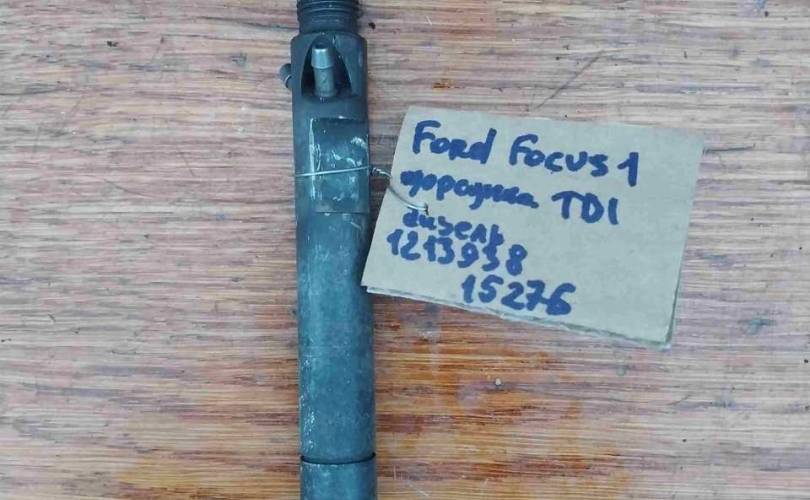 Ford Focus 1
форсунка TDI
дизель
1213938
15276